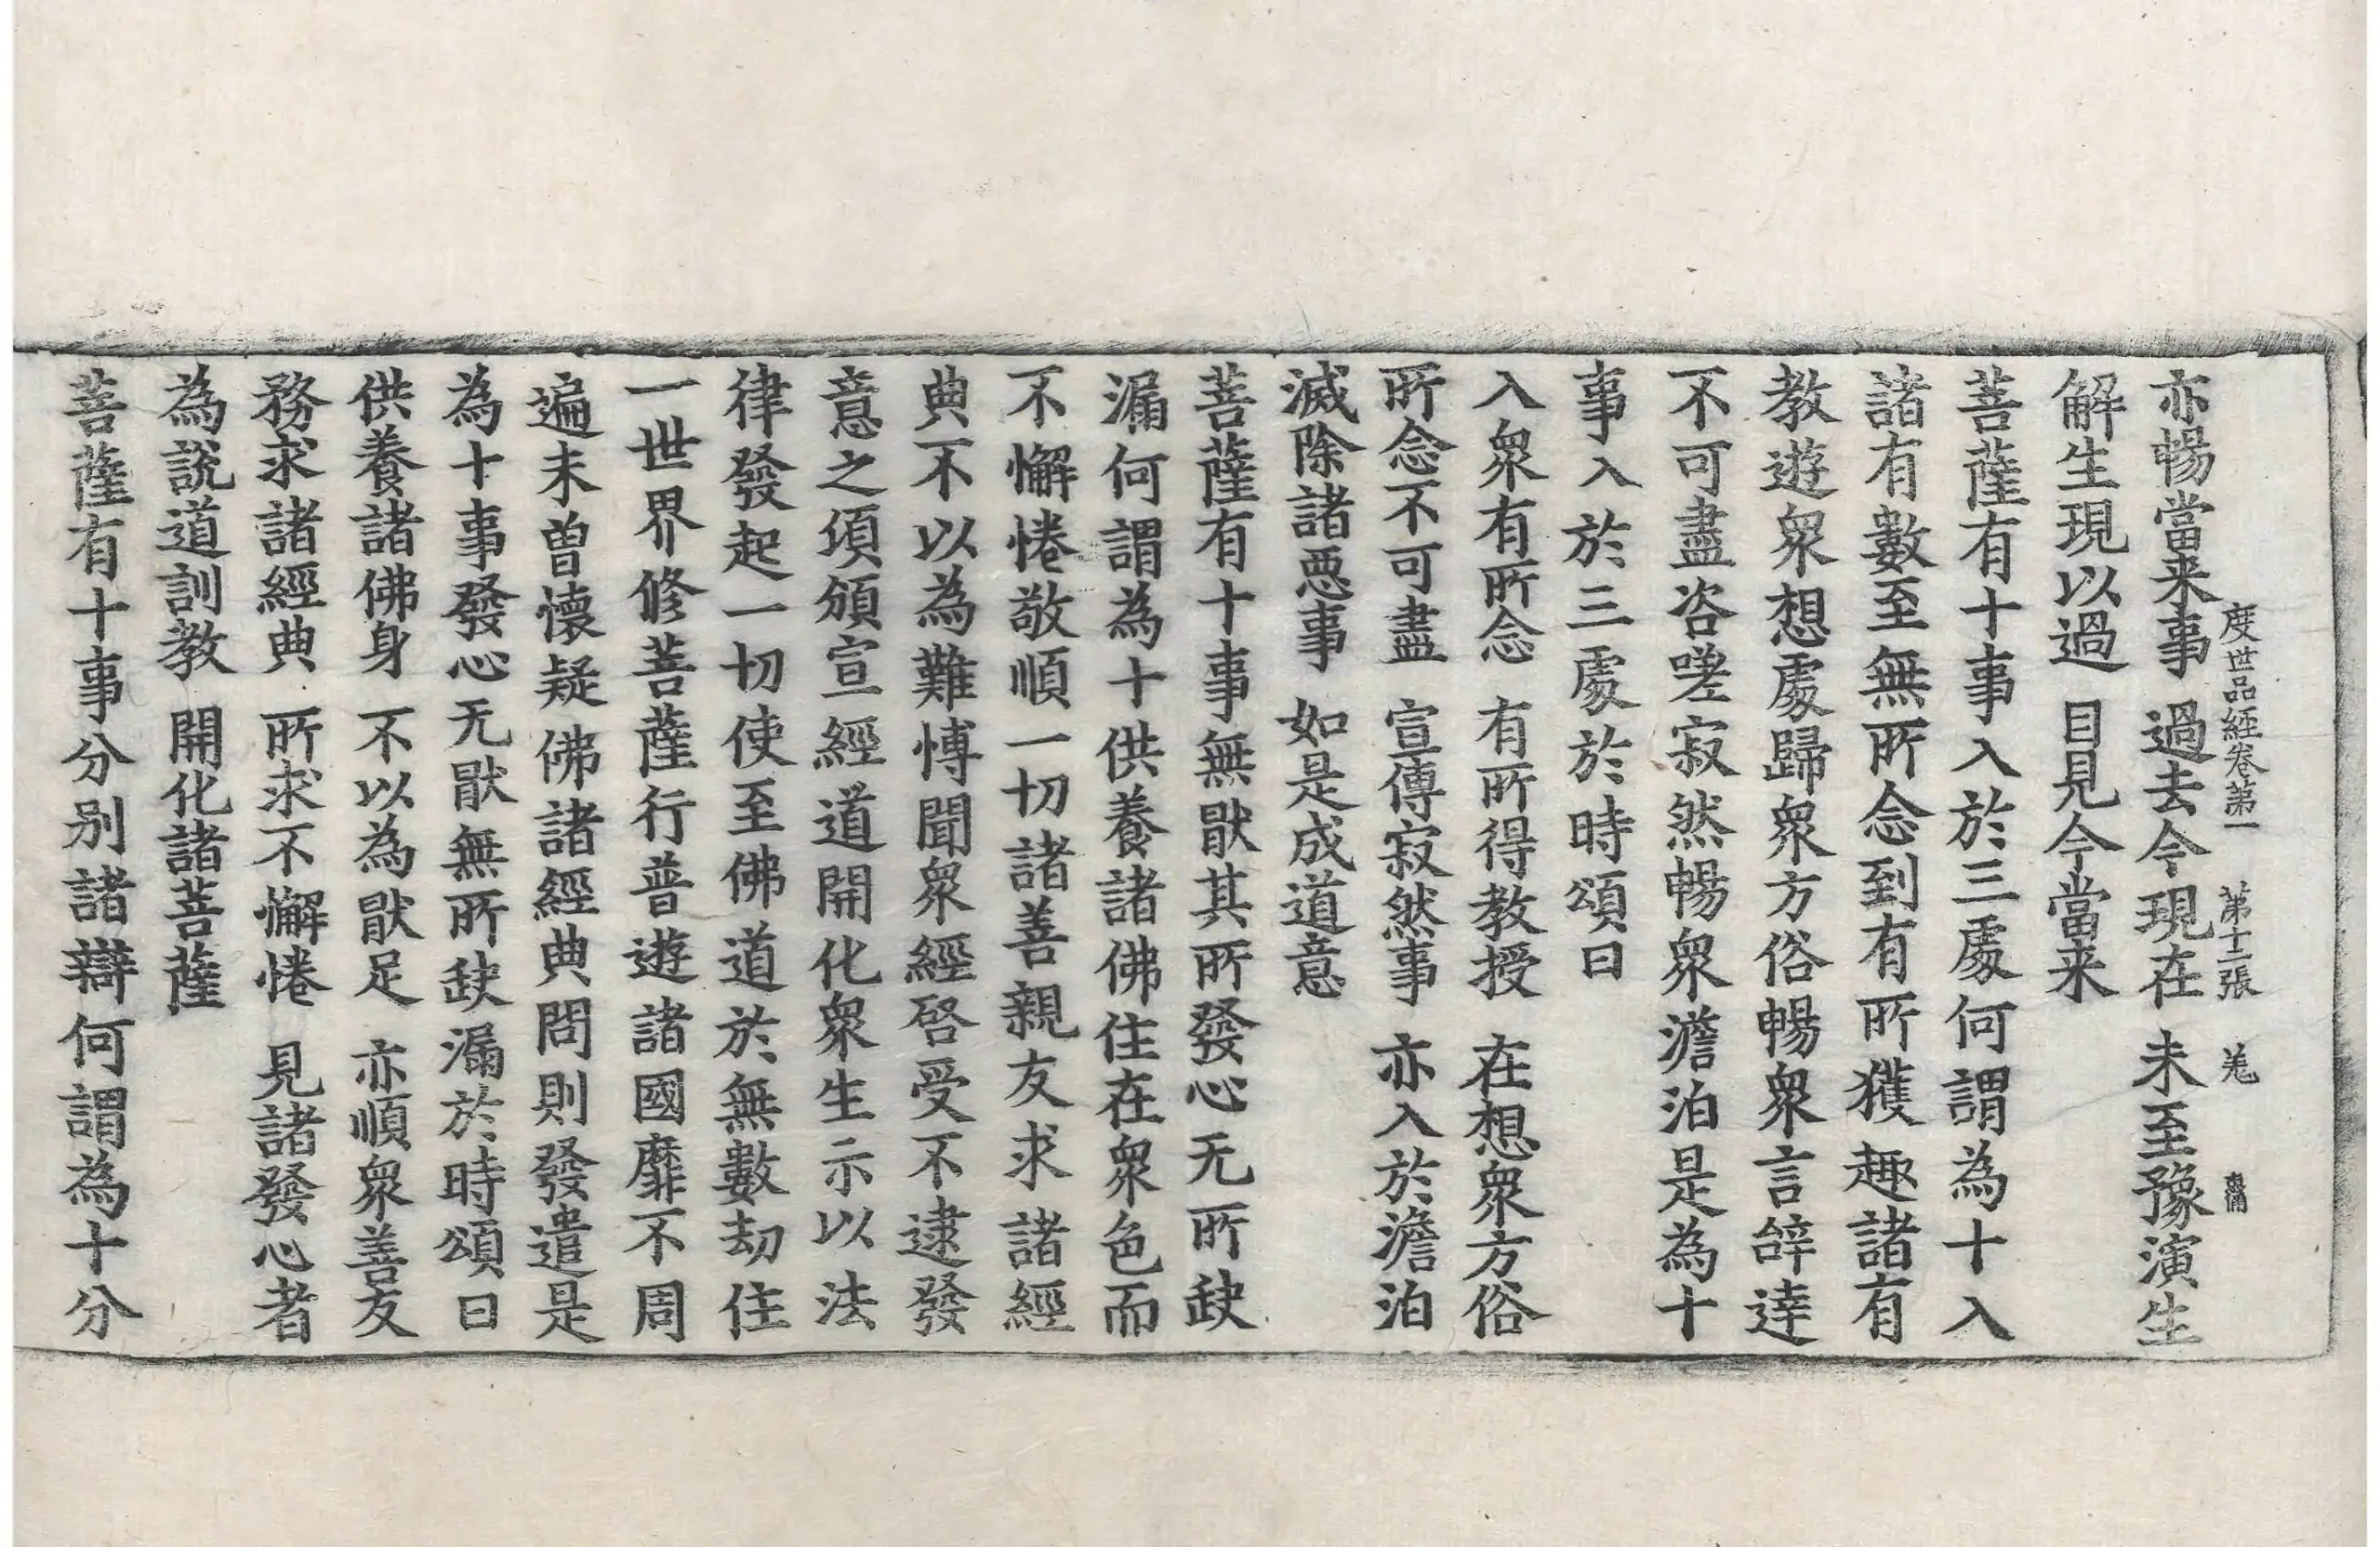 度世品經卷第一　第十二張　羌
亦暢當来事　過去今現在　未至豫演生
解生現以過　目見今當来
菩薩有十事入於三處何謂為十入
諸有數至無所念到有所獲趣諸有
教遊衆想處歸衆方俗暢衆言辝逹
不可盡咨嗟寂然暢衆澹泊是為十
事入於三處於時頌曰
入衆有所念　有所得教授　在想衆方俗
所念不可盡　宣傳寂然事　亦入於澹泊
滅除諸惡事　如是成道意
菩薩有十事無猒其所發心无所缺
漏何謂為十供養諸佛住在衆色而
不懈惓敬順一切諸善親友求諸經
典不以為難博聞衆經啓受不逮發
意之須頒宣經道開化衆生示以法
律發起一切使至佛道於無數劫住
一世界修菩薩行普遊諸國靡不周
遍未曽懷疑佛諸經典問則發遣是
為十事發心无猒無所缺漏於時頌曰
供養諸佛身　不以為猒足　亦順衆善友
務求諸經典　所求不懈惓　見諸發心者
為説道訓教　開化諸菩薩
菩薩有十事分别諸辯何謂為十分